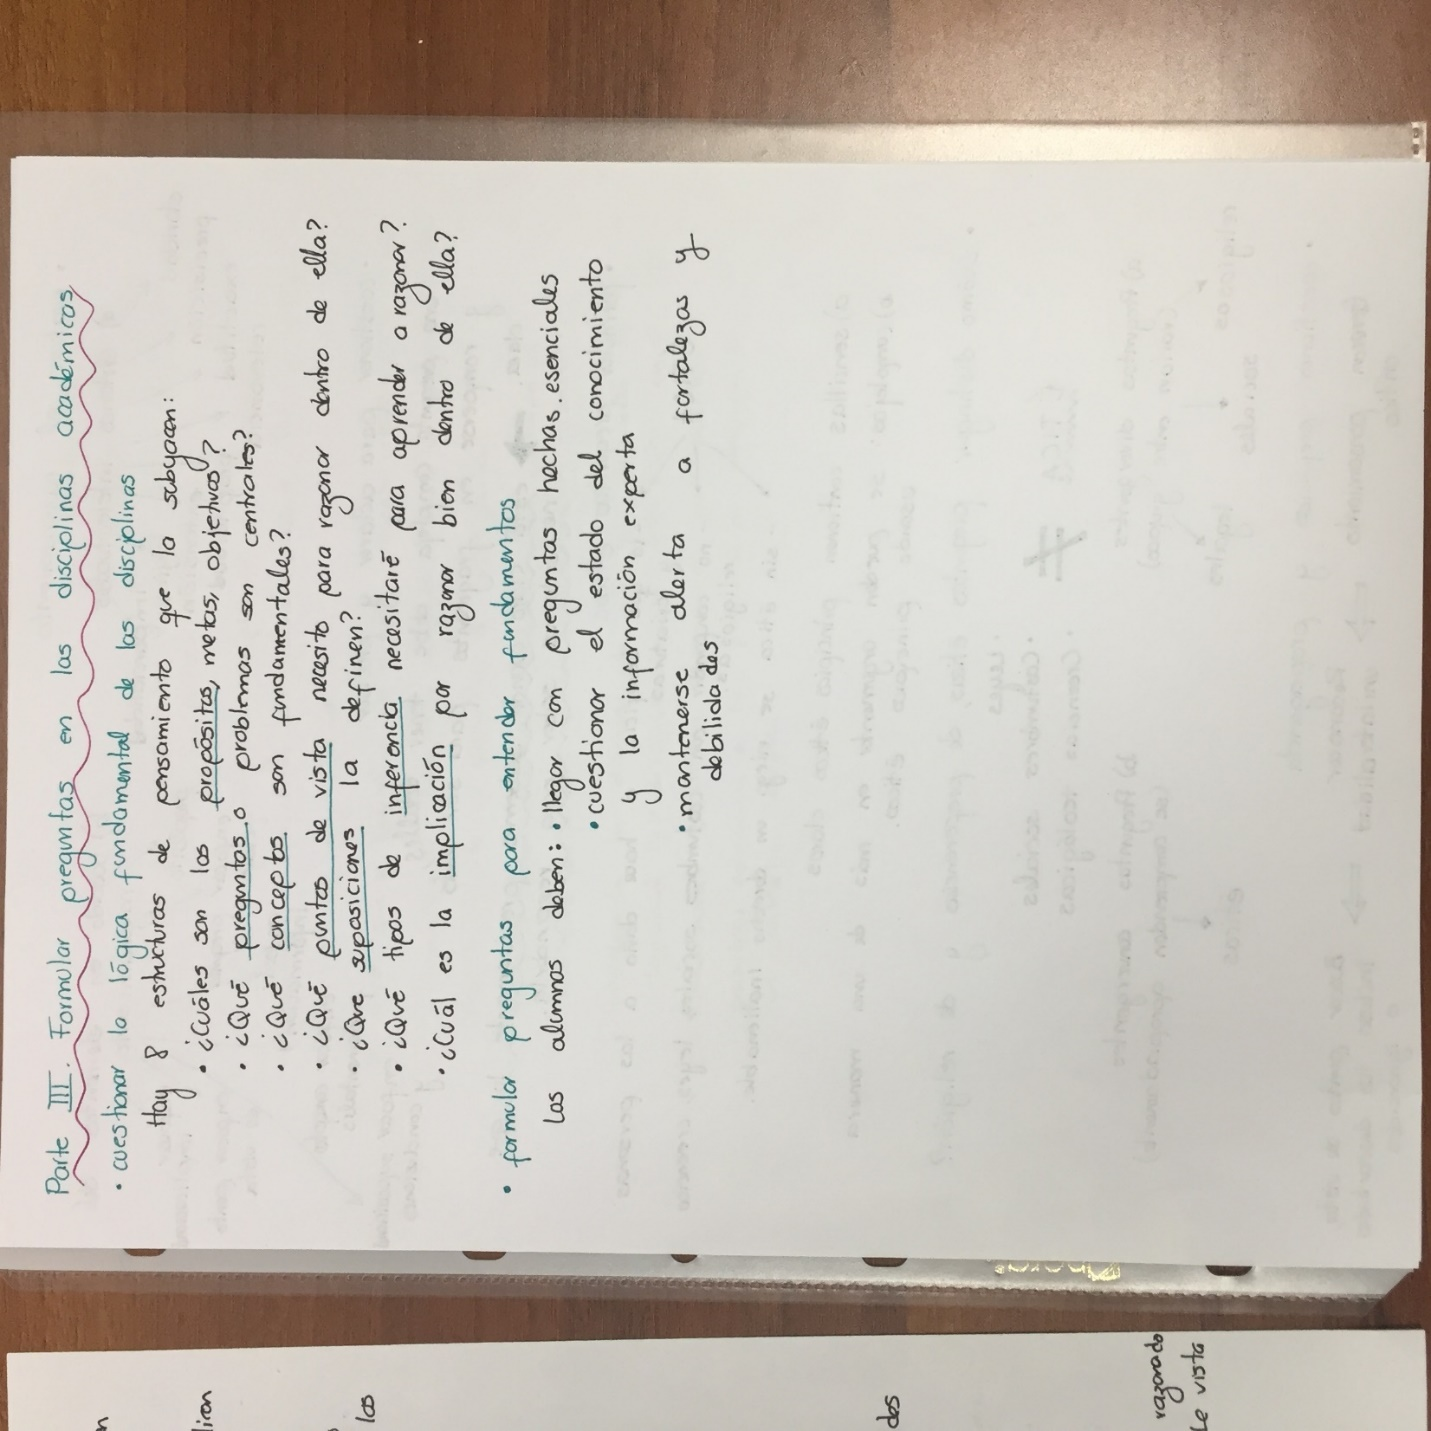 Parte III. Formular preguntas en las disciplinas académicas
• cuestionar la lógica fundamental de las disciplinas
Hay 8 estructuras de pensamiento que la subyacen:
• ¿Cuáles son los propósitos, metas, objetivos?
• ¿Qué preguntas o problemas son centrales?
• ¿Qué conceptos son fundamentales?
• ¿Qué puntos de vista necesito para razonar dentro de ella?
• ¿Que suposiciones la definen?
• ¿Qué tipos de inferencia necesitaré para aprender a razonar?
• ¿Cuál es la implicación por razonar bien dentro de ella?
• formular preguntas para entender fundamentos
Los alumnos deben: • llegar con preguntas hechas. esenciales
• cuestionar el estado del conocimiento
y la información experta
• mantenerse alerta a fortalezas y
debilidades
los
dos
razonado
de vista